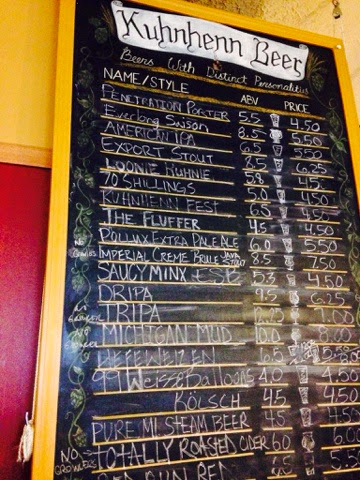 Kuhnhenn Beer
Beers With Distinct Personalities
NAME/STYLE ABV PRICE
PENETRATION PORTER 5.5 4.50
Everlong Saison 8.5 5.50
AMERICAN IPA 6.5 5.50
EXPORT STOUT 8.5 6.25
LOONIE KUHNIE 5.8 4.5
70 SHILLINGS 5.0 4.50
KUHNHENN FEST 6.5 4.50
THE FLUFFER 4.5 4.50
NO GROWLERS POLLUX EXTRA PALE ALE 6.0 5.50
IMPERIAL CREME BRULE JAVA STOUT 8.5 7.50
SAUCY MINX ESB 5.3 4.50
DRIPA 9.5 6.25
NO GROWLER TRIPA 9.00
NO GROWLER MICHIGAN MUD 10.0 8.00
HEFEWEIZEN 6.5
Weisse Balloons 4.0 4.50
KÖLSCH 4.5 4.50
PURE MI STEAM BEER 4.5 4.50
NO GROWLERS TOTALLY ROASTED CIDER 6.0 6.00
RED